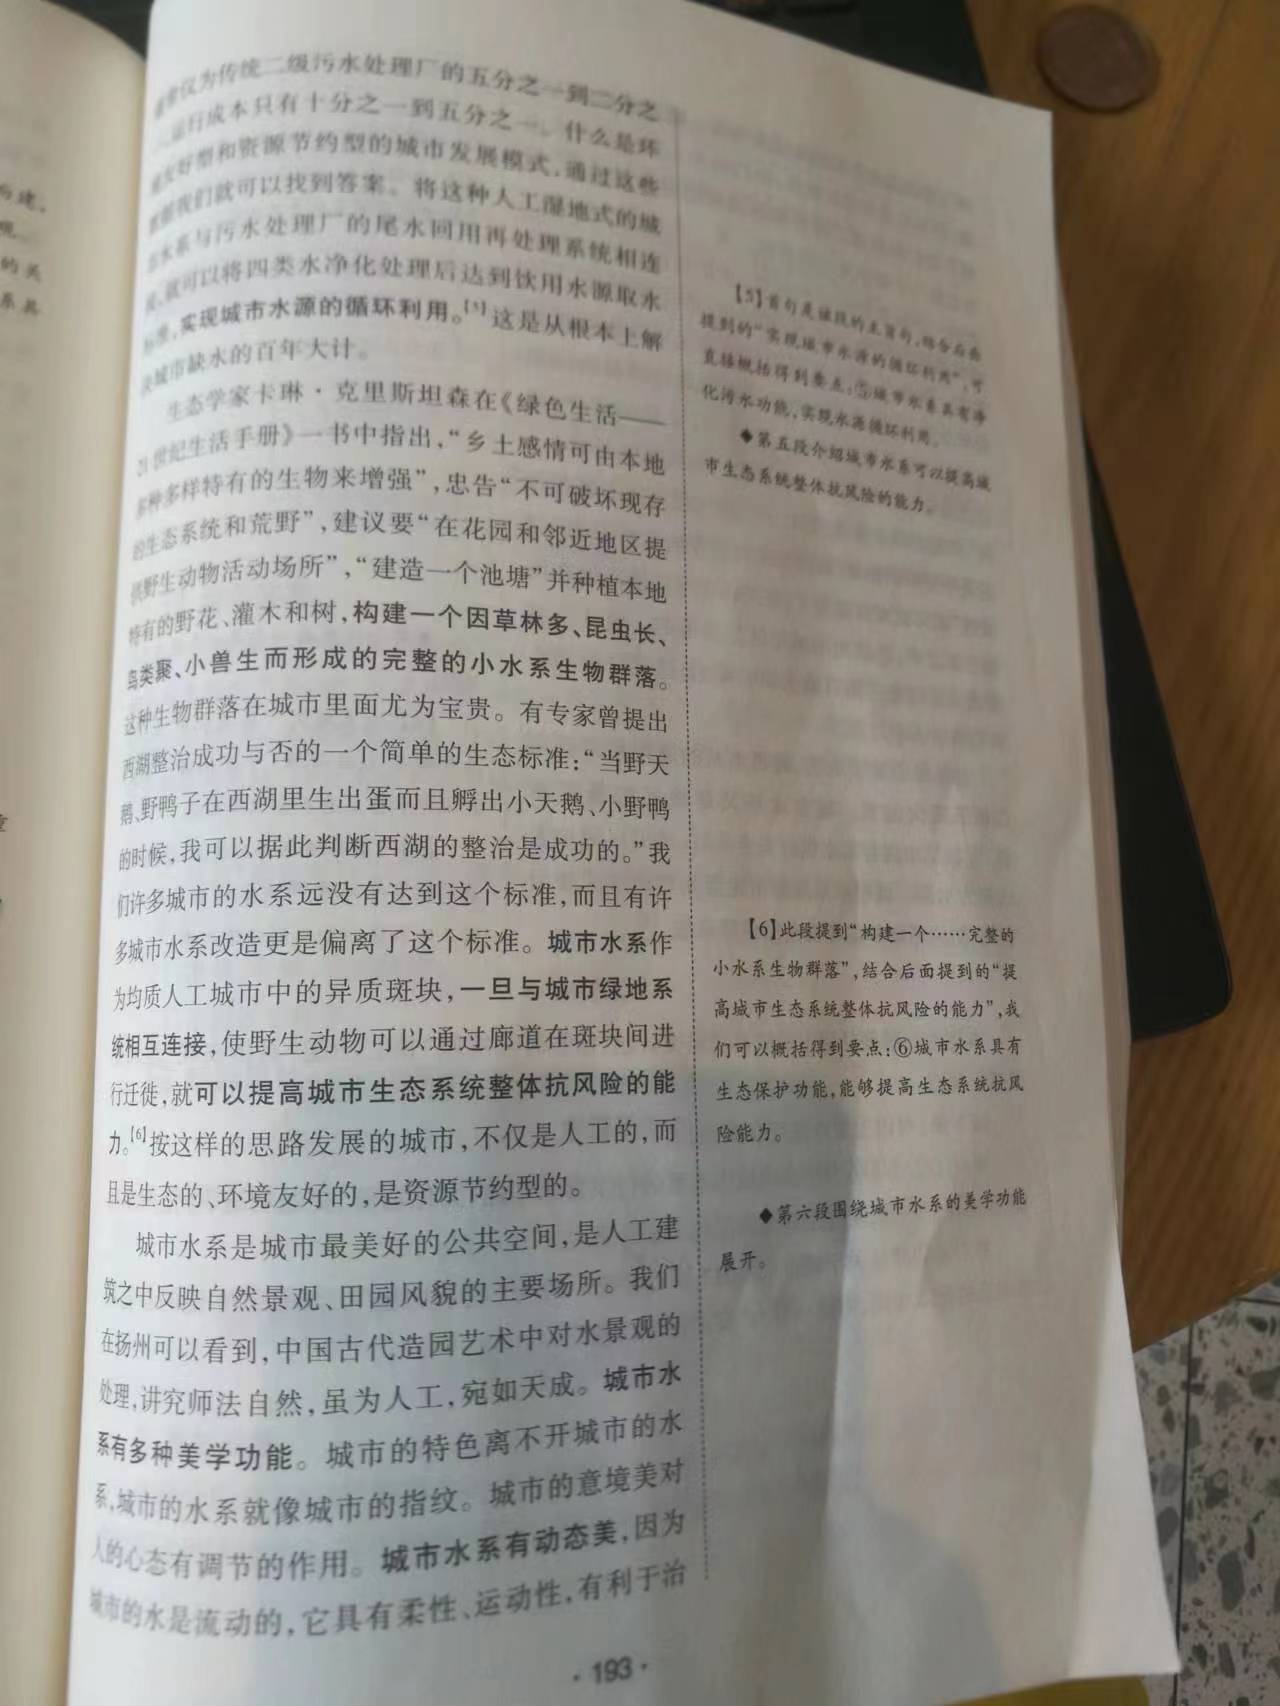 构建,
观。
的关
系具
通常仅为传统二级污水处理厂的五分之一到二分之
一,运行成本只有十分之一到五分之一。什么是环
境友好型和资源节约型的城市发展模式,通过这些
我们就可以找到答案。将这种人工湿地式的城
市水系与污水处理厂的尾水回用再处理系统相连
接,就可以将四类水净化处理后达到饮用水源取水
标准,实现城市水源的循环利用。[5]这是从根本上解
决城市缺水的百年大计。
生态学家卡琳·克里斯坦森在《绿色生活——
21世纪生活手册》一书中指出,“乡土感情可由本地
多种多样特有的生物来增强”,忠告“不可破坏现存
的生态系统和荒野”,建议要“在花园和邻近地区提
供野生动物活动场所”,“建造一个池塘”并种植本地
特有的野花、灌木和树,构建一个因草林多、昆虫长、
鸟类聚、小兽生而形成的完整的小水系生物群落。
这种生物群落在城市里面尤为宝贵。有专家曾提出
西湖整治成功与否的一个简单的生态标准:“当野天
鹅、野鸭子在西湖里生出蛋而且孵出小天鹅、小野鸭
的时候,我可以据此判断西湖的整治是成功的。”我
们许多城市的水系远没有达到这个标准,而且有许
多城市水系改造更是偏离了这个标准。城市水系作
为均质人工城市中的异质斑块,一旦与城市绿地系
统相互连接,使野生动物可以通过廊道在斑块间进
行迁徙,就可以提高城市生态系统整体抗风险的能
力。[6]按这样的思路发展的城市,不仅是人工的,而
且是生态的、环境友好的,是资源节约型的。
城市水系是城市最美好的公共空间,是人工建
筑之中反映自然景观、田园风貌的主要场所。我们
在扬州可以看到,中国古代造园艺术中对水景观的
处理,讲究师法自然,虽为人工,宛如天成。城市水
系有多种美学功能。城市的特色离不开城市的水
系,城市的水系就像城市的指纹。城市的意境美对
人的心态有调节的作用。城市水系有动态美,因为
城市的水是流动的,它具有柔性、运动性,有利于治
【5】首句是该段的主旨句,结合后面
提到的“实现城市水源的循环利用”,可
直接概括得到要点:⑤城市水系具有净
化污水功能,实现水源循环利用。
◆第五段介绍城市水系可以提高城
市生态系统整体抗风险的能力。
【6】此段提到“构建一个……完整的
小水系生物群落”,结合后面提到的“提
高城市生态系统整体抗风险的能力”,我
们可以概括得到要点:⑥城市水系具有
生态保护功能,能够提高生态系统抗风
险能力。
◆第六段围绕城市水系的美学功能
展开。
·193·